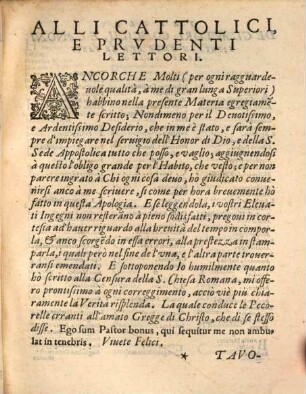 ALLI CATTOLICI,
E PRVDENTI
LETTORI.
ANCORCHE Molti (per ogni ragguarde-
uole qualità, à me di gran lunga Superiori)
habbino nella presente Materia egregiamẽ-
te scritto; Nondimeno per il Denotissimo,
e Ardentissimo Desiderio, che in me è stato, e sarà sem-
pre d'impiegare nel seruigio dell'Honor di Dio, e della S.
Sede Appostolica tutto che posso, e vaglio, aggiungendosi
à questo l'obligo grande per l'Habito, che vesto, e per non
parere ingrato à Chi ogni cosa deuo, hò giudicato conue-
nirsi ancò à me scriuere, si come per hora breuemente hò
fatto in questa Apologia. E se leggendola, i vostri Eleua-
ti Ingegni non resterãno à pieno sodisfatti, pregoui in cor-
tesia ad hauer riguardo alla breuità del tempo in compor-
la, & anco scorgẽdo in essa errori, alla prestezza in stam-
parla, i quali però nel fine de l'vna, e l'altra parte troue-
ransi emendati. E sottoponendo Io humilmente quanto
hò scritto alla Censura della S. Chiesa Romana, mi offe-
ro prontissimo à ogni correggimento, acciò viè più chia-
ramente la Verità risplenda. La quale conduce le Peco-
relle erranti all'amato Gregge di Christo, che di se stesso
disse. Ego sum Pastor bonus, qui sequitur me non ambu-
lat in tenebris. Viuete Felici.
* TAVO-